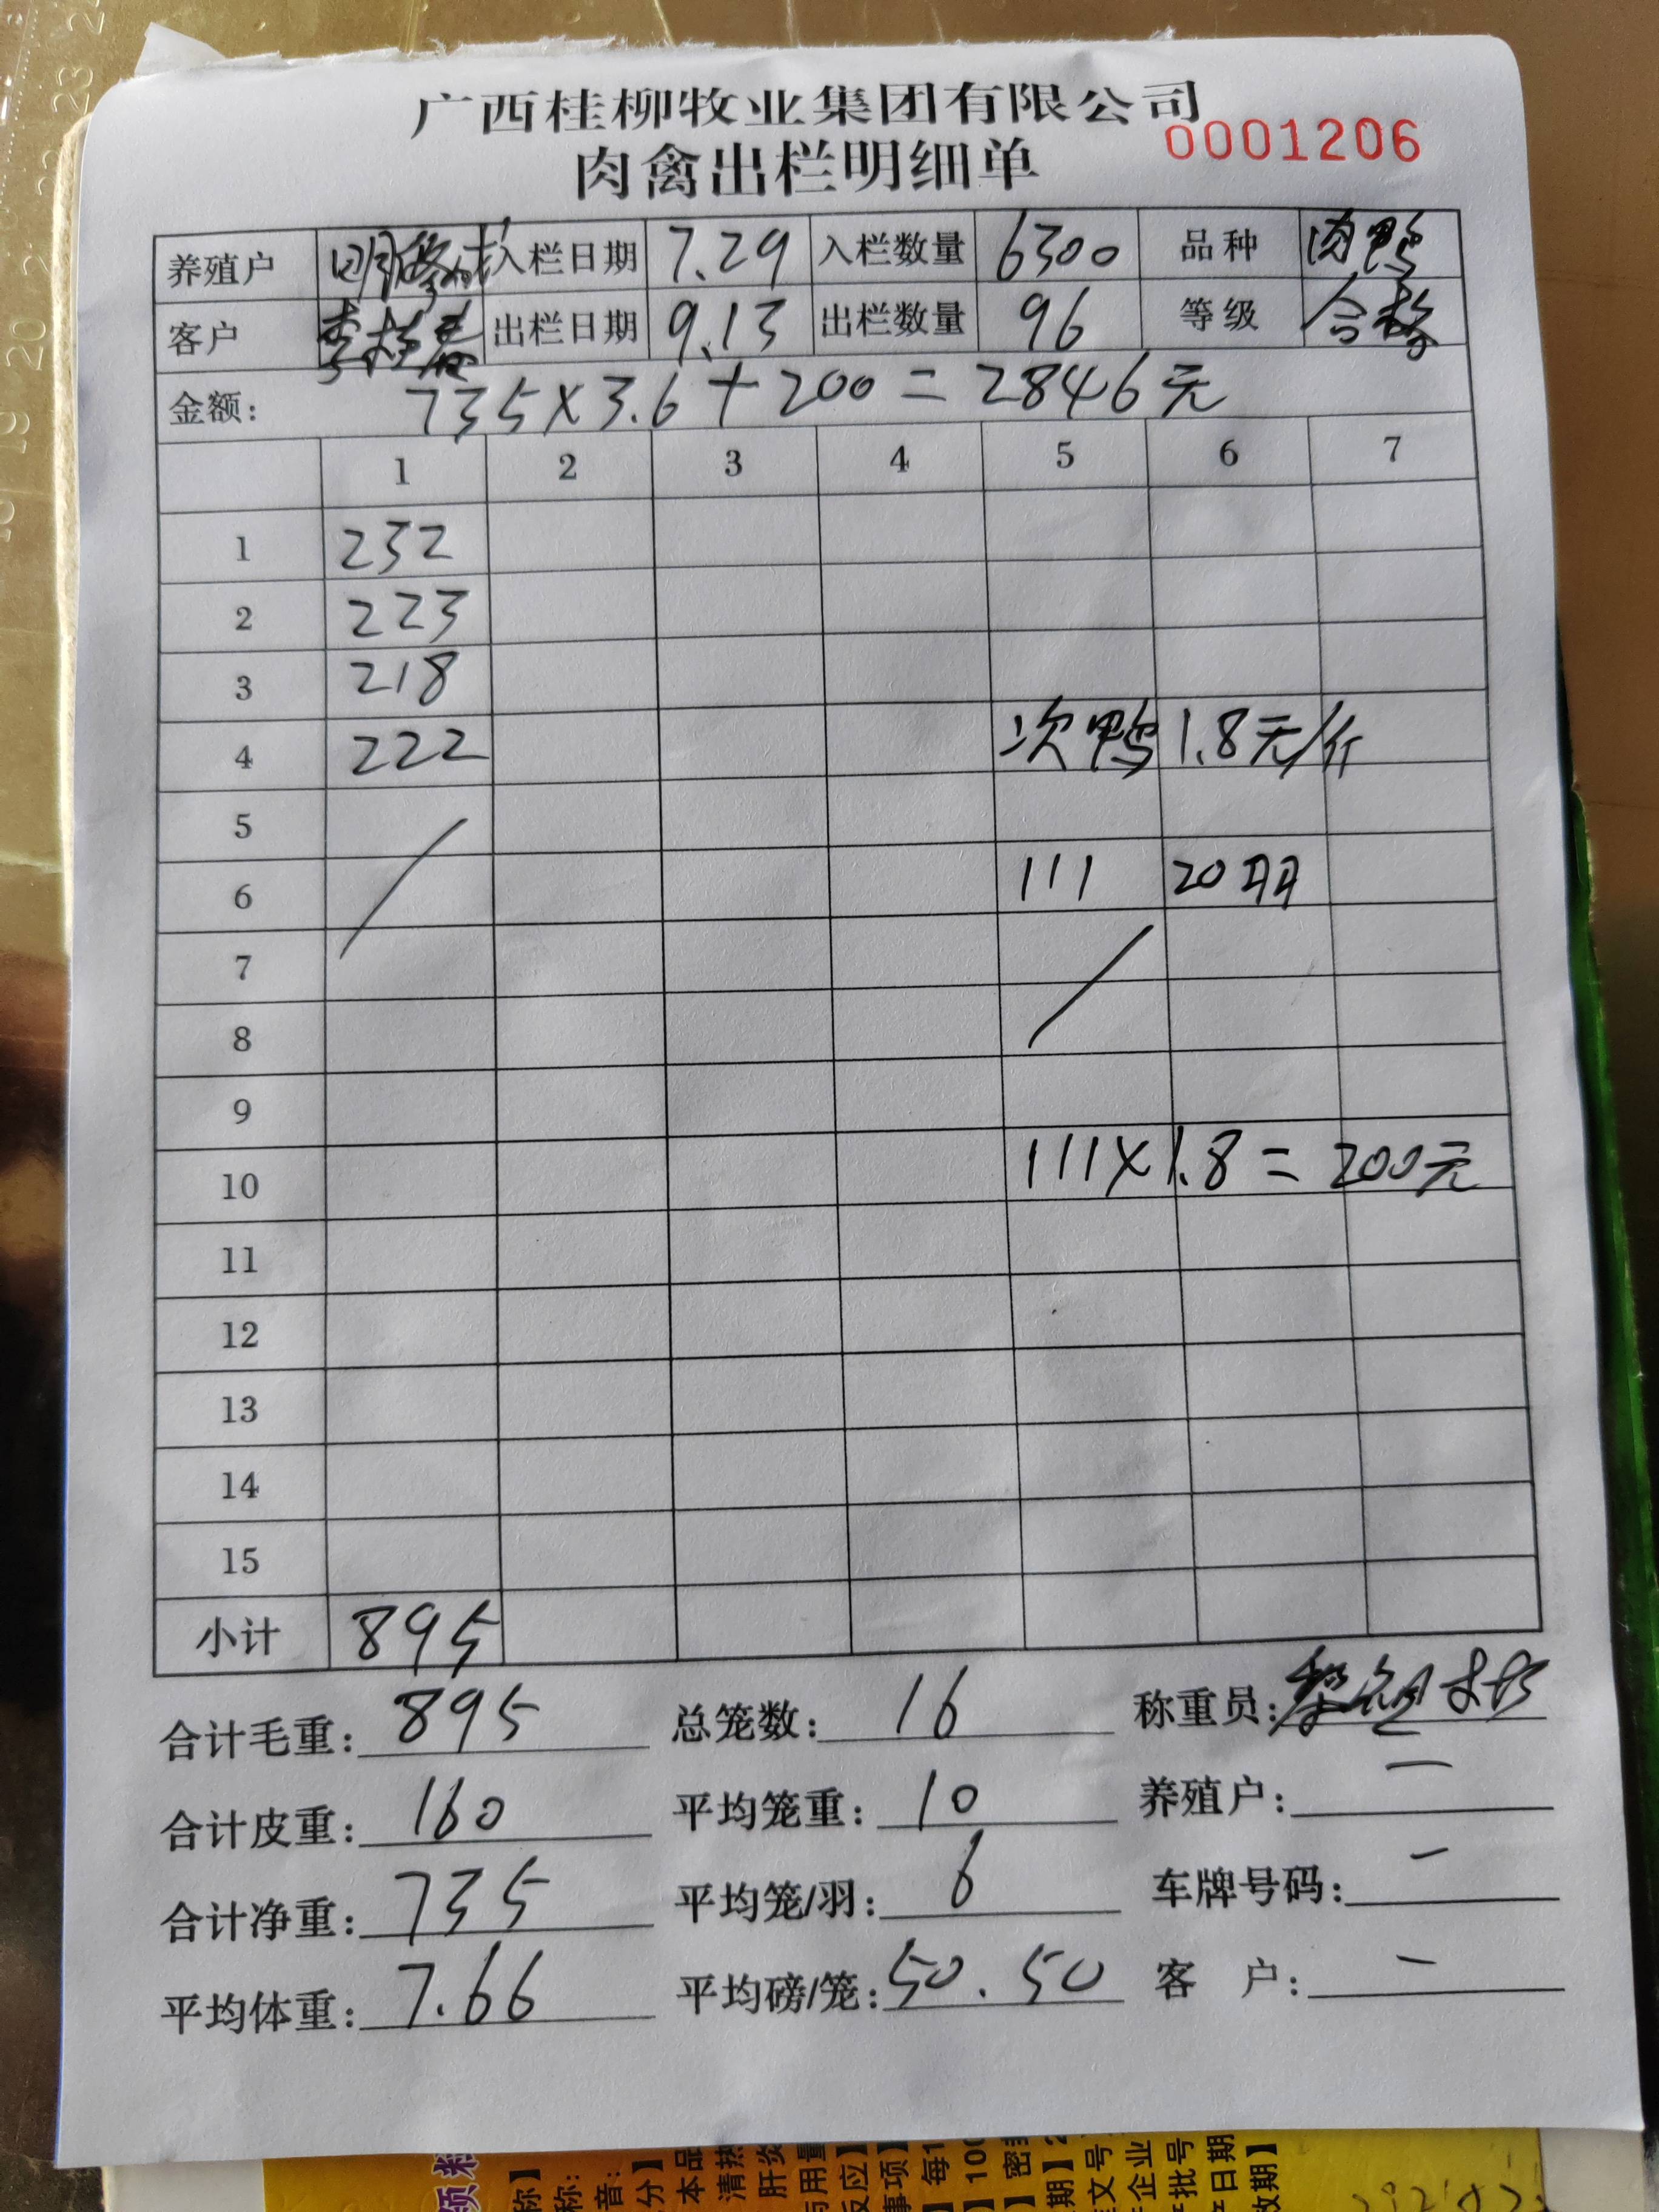 广西桂柳牧业集团有限公司
肉禽出栏明细单 0001206
养殖户 入栏日期 7.29 入栏数量 6300 品种 肉鸭
客户 出栏日期 9.13 出栏数量 96 等级 合格
金额: 735×3.6+200=2846元
1 2 3 4 5 6 7
1 232
2 223
3 218
4 222 次鸭 1.8元/斤
5
6 111 20羽
7
8
9
10 111×1.8=200元
11
12
13
14
15
小计 895
合计毛重: 895 总笼数: 16 称重员:
合计皮重: 160 平均笼重: 10 养殖户: 一
合计净重: 735 平均笼/羽: 6 车牌号码: 一
平均体重: 7.66 平均磅/笼: 50.50 客 户: 一